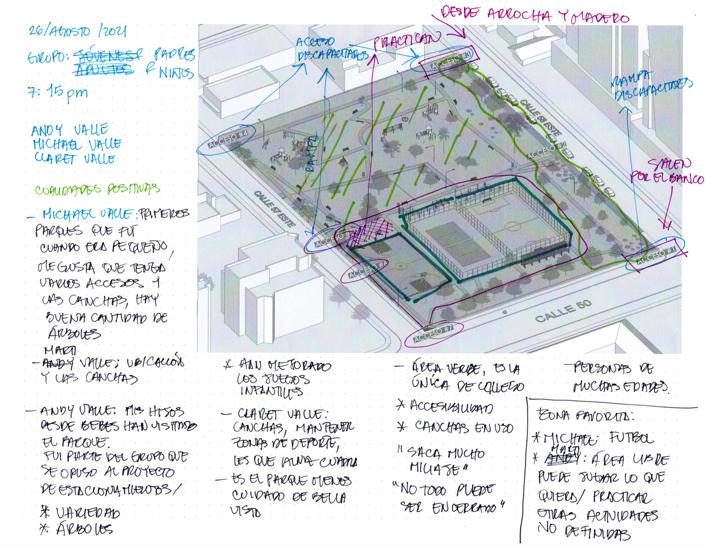 26/AGOSTO/2021
GRUPO: JÓVENES PADRES
ADULTOS NIÑOS
7:15pm
ANDY VALLE
MICHAEL VALLE
CLARET VALLE
CUALIDADES POSITIVAS
- MICHAEL VALLE: PRIMEROS
PARQUES QUE FUI
CUANDO ERA PEQUEÑO/
ME GUSTA QUE TENGA
VARIOS ACCESOS Y
LAS CANCHAS, HAY
BUENA CANTIDAD DE
ÁRBOLES
MATI
- ANDY VALLE: UBICACIÓN
Y LAS CANCHAS
- ANDY VALLE: MIS HIJOS
DESDE BEBES HAN VISITADO
EL PARQUE.
FUI PARTE DEL GRUPO QUE
SE OPUSO AL PROYECTO
DE ESTACIONAMIENTOS/
* VARIEDAD
* ÁRBOLES
DESDE ARROCHA Y MADERO
ACCESO
DISCAPACITADOS
PRACTICAN
RAMPA
DISCAPACITADOS
SALEN
POR EL BANCO
RAMPA
CALLE 51 ESTE
CALLE 50
* HAN MEJORADO
LOS JUEGOS
INFANTILES
- CLARET VALLE:
CANCHAS, MANTENER
ZONAS DE DEPORTE,
- ES EL PARQUE MENOS
CUIDADO DE BELLA
VISTA
- ÁREA VERDE, ES LA
ÚNICA DE
* ACCESIBILIDAD
* CANCHAS EN USO
"SACA MUCHO
"
"NO TODO PUEDE
SER ENCERRADO"
- PERSONAS DE
MUCHAS EDADES.
ZONA FAVORITA:
* MICHAEL: FUTBOL
MATI
* ANDY: ÁREA LIBRE
PUEDE JUGAR LO QUE
QUIERA/ PRACTICAR
OTRAS ACTIVIDADES
NO DEFINIDAS